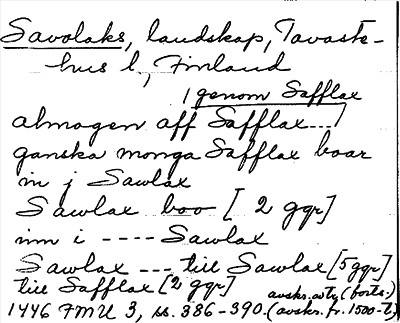 Savolaks, landskap, Tavaste-
hus l., Finland
/ genom Safflax
almogen aff Safflax---/
ganska monga Safflax boar
in j Sawlax
Sawlax boo [2 ggr]
inn i ---- Sawlax
Sawlax --- till Sawlax [5 ggr]
till Safflax [2 ggr]
avskr. (forts.)
1446 FMU 3, ss. 386-390. (avskr. fr. 1500-t)